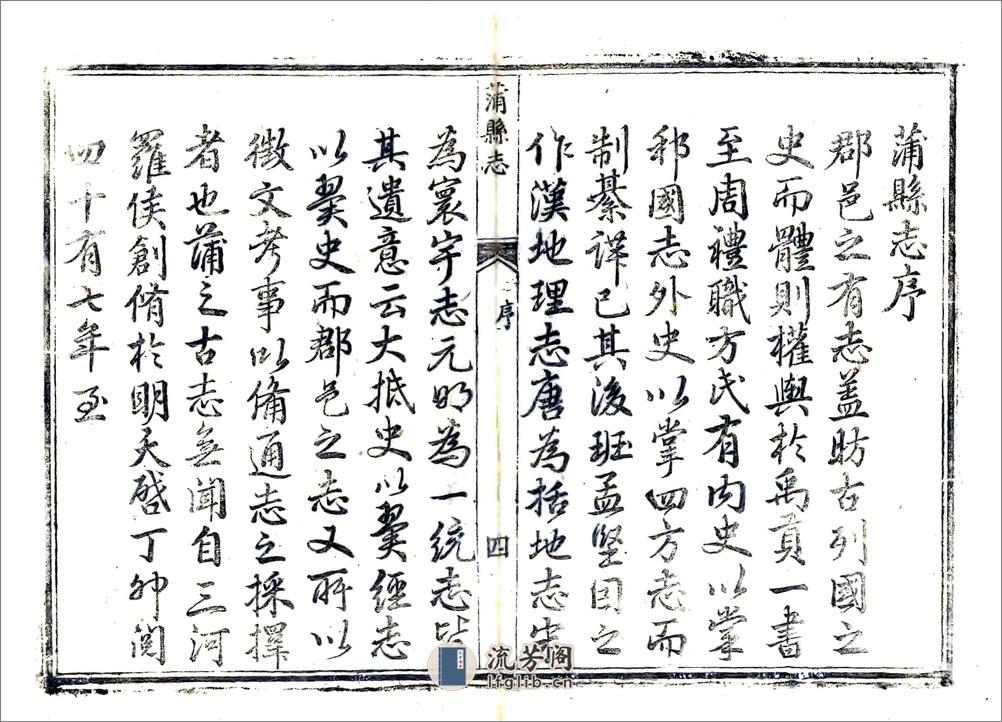 蒲縣志序
郡邑之有志蓋昉古列國之
史而體則權輿於禹貢一書
至周禮職方氏有內史以掌
邦國志外史以掌四方志而
制綦詳已其後班孟堅因之
作漢地理志唐為括地志宋
蒲縣志
序
四
為寰宇志元明為一統志皆
其遺意云大抵史以翼經志
以翼史而郡邑之志又所以
徵文考事以備通志之採擇
者也蒲之古志無聞自三河
羅侯創脩於明天啓丁卯閱
四十有七年至
流芳阁
lfglib.cn